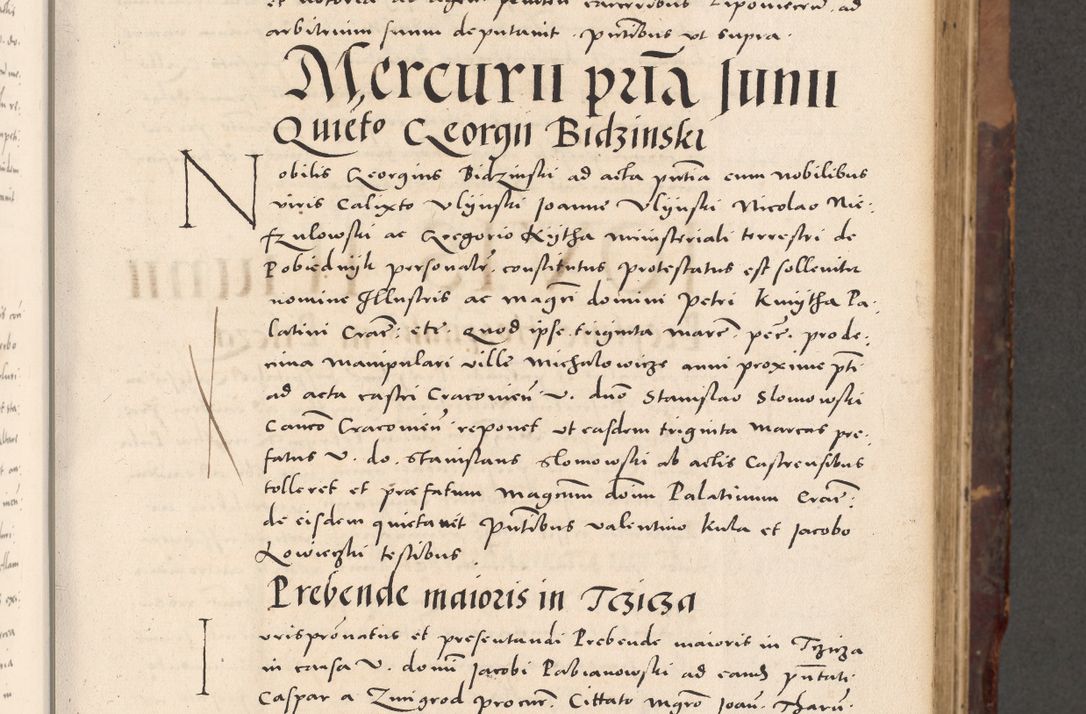 arbitrium suum deputavit . pntibus ut supra .
Mercurii prīa Junii
Quieto Georgii Bidzinski
Nobilis Georgius Bidzinski ad acta pntia cum nobilibus
viris Calixto Vlijnski Joanne Vlijnski Nicolao Nie-
 szulowski ac Gregorio Kijtha ministeriali terrestri de
Pobiednijk personalr constitutus protestatus est sollenitr
nomine Illustris ac magci domini Petri Kmijtha Pa-
latini Crac: etc. Quod ipse triginta marc. pec. pro de-
cima manipulari ville Michalowicze anni proxime pti
ad acta castri Cracovien v. dno Stanislao Slomowski
Canco Cracovien reponet ut easdem triginta marcas pre-
fatus v. do. Stanislaus Slomowski ab actis Castrensibus
tolleret et præfatum magcum dnm Palatinum Crac:
de eisdem quietavit pntibus Valentino Kula et Jacobo
Lowieczki testibus
Prebende maioris in Tczicza
Jurispronatus et presentandi Prebende maioris in Tczicza
in causa v. domi Jacobi Pabianowski ad eand pntati
Caspar a Zmigrod procur. Cittato mgro Joan. Tharu.